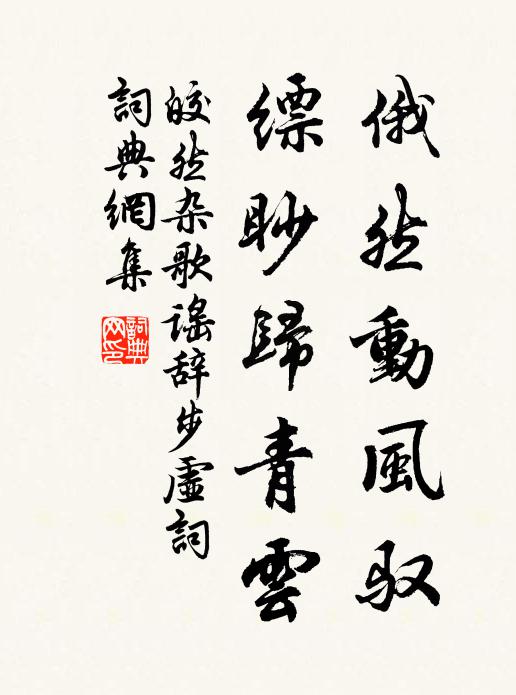 俄然動風驭
缥眇歸青雲
皎然杂歌謠辞步虛詞
詞典網集
詞典網印